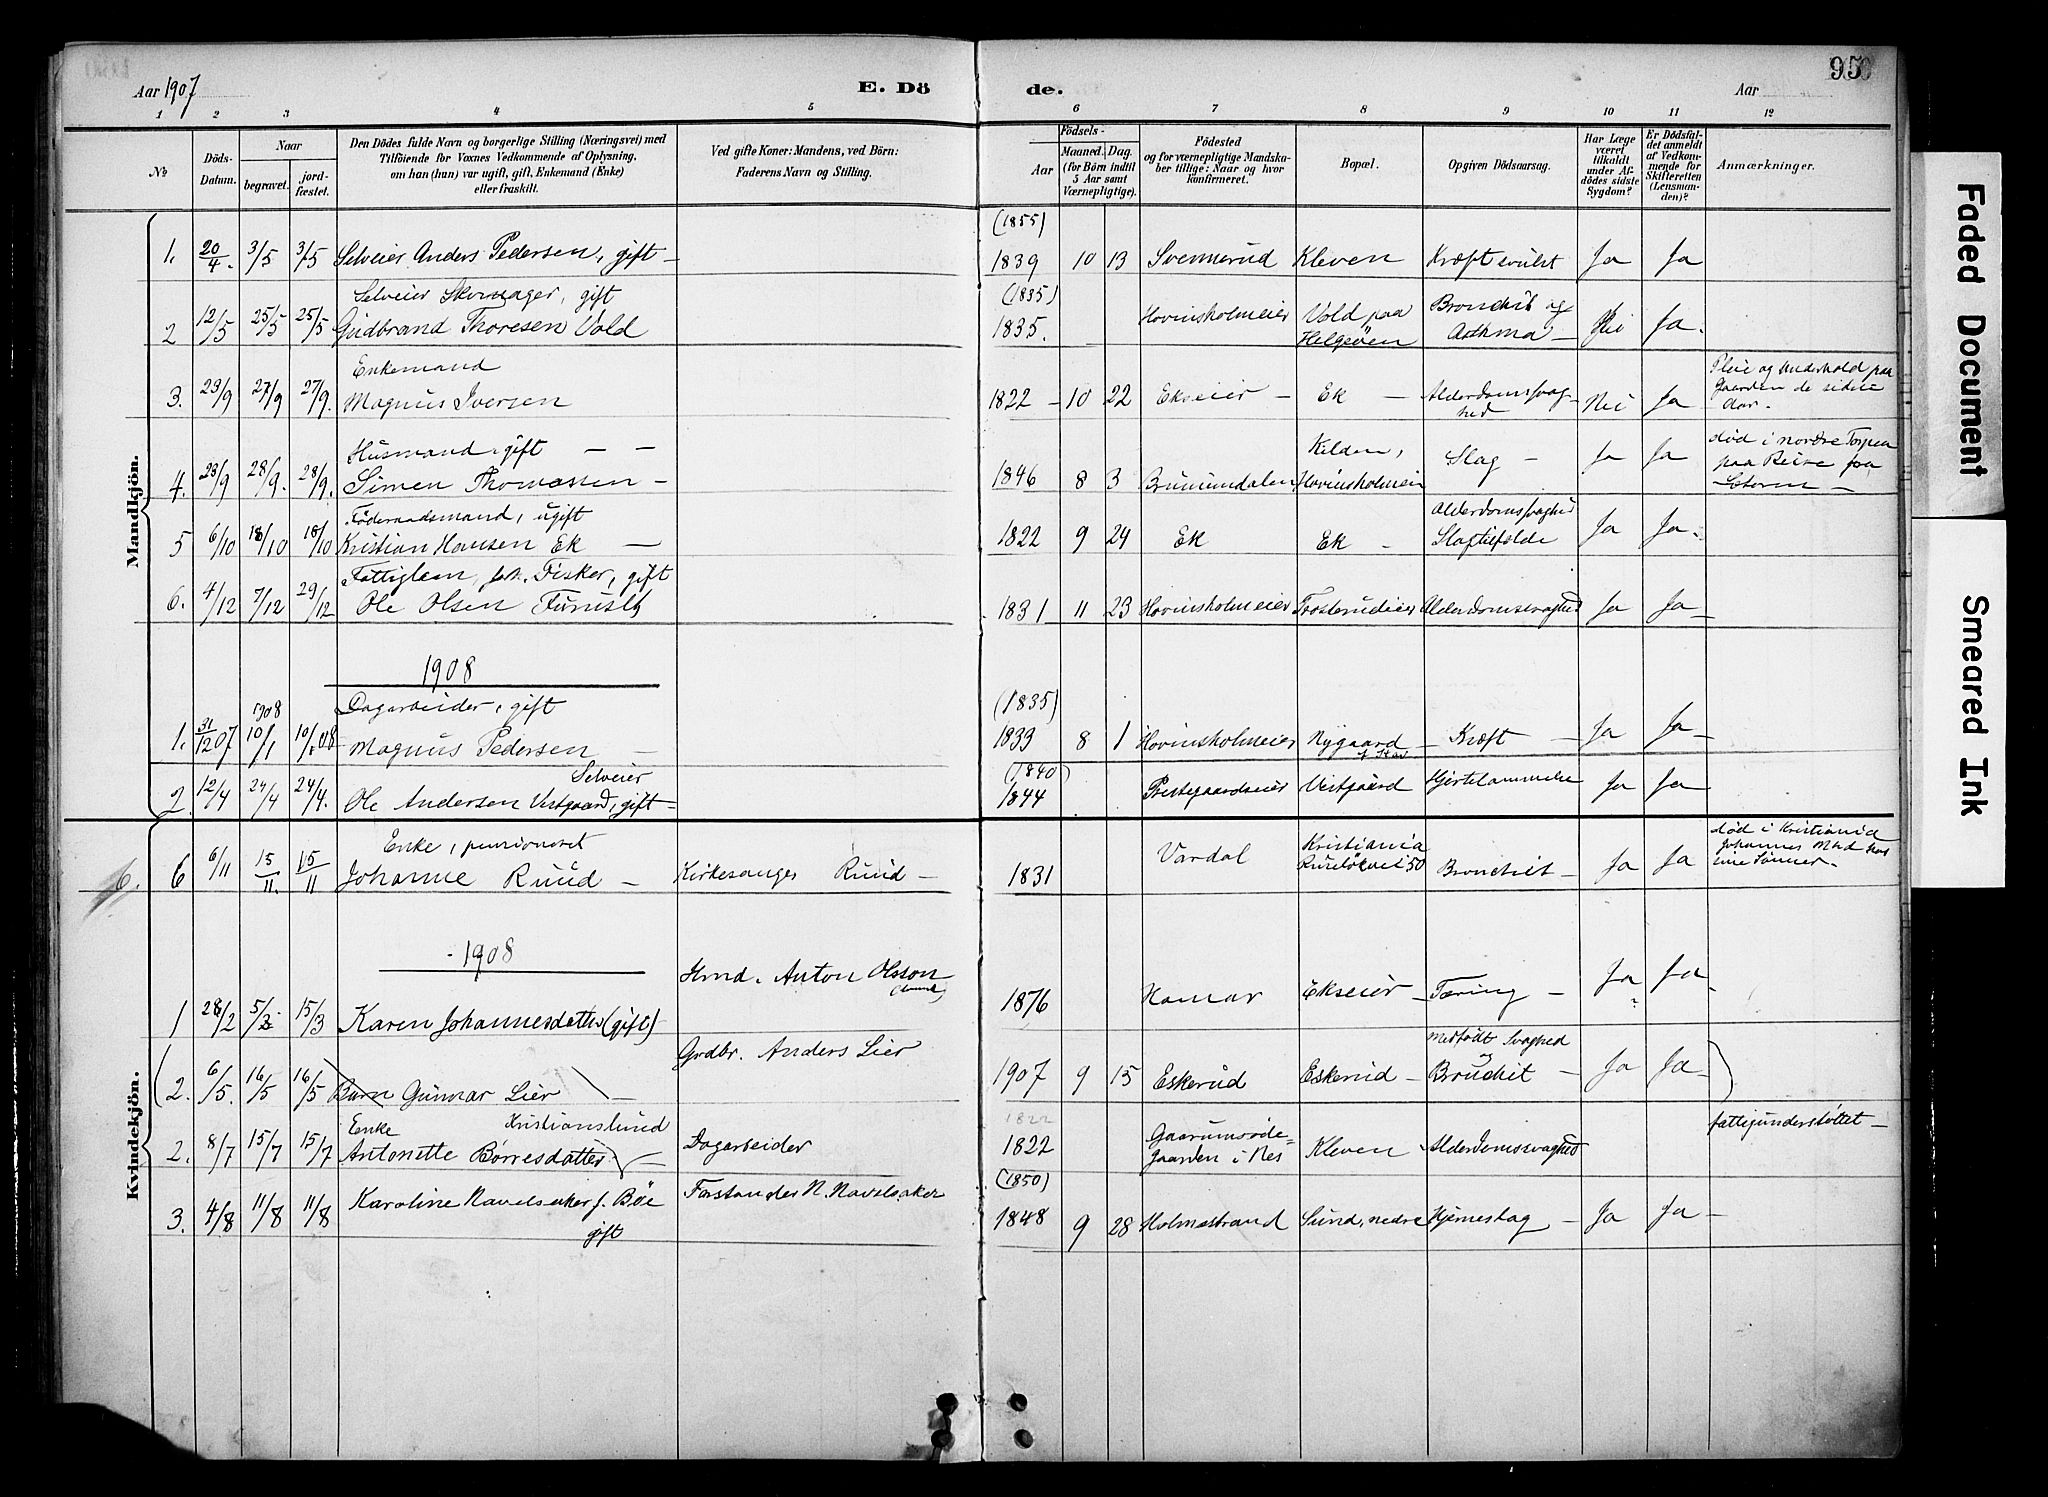 Aar 1907
E. Dö
de.
Aar
95
1 2 3 4 5 6 7 8 9 10 11 12
№
Döds-Datum.
Naar
begravet.
jordfæstet.
Den Dödes fulde Navn og borgerlige Stilling (Næringsvei) med
Tilföiende for Voxnes Vedkommende af Oplysning,
om han (hun) var ugift, gift, Enkemand (Enke)
eller fraskilt.
Ved gifte Koner: Mandens, ved Börn:
Faderens Navn og Stilling.
Födsels-
Aar
Maaned. Dag.
(for Börn indtil
5 Aar samt
Værnepligtige).
Födested
og for værnepligtige Mandska-
ber tillige: Naar og hvor
konfirmeret.
Bopæl.
Opgiven Dödsaarsag.
Har Læge
været
tilkaldt
under Af-
dödes sidste
Sygdom?
Er Dödsfal-
det anmeldt
af Vedkom-
mende for
Skifteretten
(Lensman-
den)?
Anmærkninger.
Mandkjön.
(1855)
1. 20/4. 3/5 3/5 Selveier Anders Pedersen, gift - 1839 10 13 Svennerud Kleven Kræftsvulst Ja Ja
Selveier Skomager, gift (1835) Bronchit og
2 12/5 25/5 25/5 Gudbrand Thoresen Vold 1835. Hovinsholmeier Vold paa Helgøen Asthma - Nei Ja.
Enkemand
3. 23/9 27/9 27/9. Magnus Iversen 1822 - 10 22 Ekseier - Ek - Alderdomssvag-hed Nei Ja
Pleie og Underhold paa
Gaarden de sidste
Aar.
Husmand, gift - - Kilden,
4. 23/9 28/9. 28/9. Simen Thomassen - 1846 8 3 Brumundalen Hovinsholmeier Slag - Ja Ja
død i nordre Torpen
paa Reise fra
Føderaadsmand, ugift Alderdomssvaghed
5 6/10 18/10 18/10 Kristian Hansen Ek - 1822 9 24 Ek Ek - Slagtilfælde Ja Ja.
Fattiglem, fork. Fisker, gift
6. 4/12 7/12 29/12 Ole Olsen Furusly 1831 11 23 Hovinsholmeier Frosterudeier Alderdomssvaghed Ja Ja -
1908
1908 Dagarbeider, gift (1835)
1. 31/12 07 10/1 10/1 08 Magnus Pedersen - 1839 8 1 Hovinsholmeier Nygaard - Kræft - Ja Ja -
Selveier (1840)
2. 12/4 24/4 24/4. Ole Andersen Vestgaard, gift - 1844 Prestegaardseier Vestgaard Hjertelammelse Ja Ja -
Kvindekjön.
Enke, pensioneret
6. 6 6/11 15/11. 15/11 Johanne Ruud - Kirkesanger Ruud - 1831 Vardal Kristiania 50 Bronchit - Ja Ja
død i Kristiania
sine Sønner.
- 1908
Hmd. Anton Olsson
1 28/2 5/3 15/3 Karen Johannesdatter (gift) 1876 Hamar Ekseier - Tæring - Ja Ja -
Grdbr. Anders Lier medfødt Svaghed og
(2. 6/5. 16/5 16/5 Barn Gunnar Lier - 1907 9 15 Eskerud Eskerud - Bronchit - Ja Ja - )
Enke Kristianslund 1822
2. 8/7 15/7 15/7 Antonette Børresdatter - Dagarbeider 1822 Gaarden i Nes Kleven - Alderdomssvaghed fattigunderstøttet -
(1850)
3. 4/8 11/8 11/8 Karoline Navelsaker f. Bøe gift Forstander N. Navelsaker 1848 9 28 Holmestrand Sund, nedre Hjerneslag - Ja Ja -
Faded Document
Smeared Ink